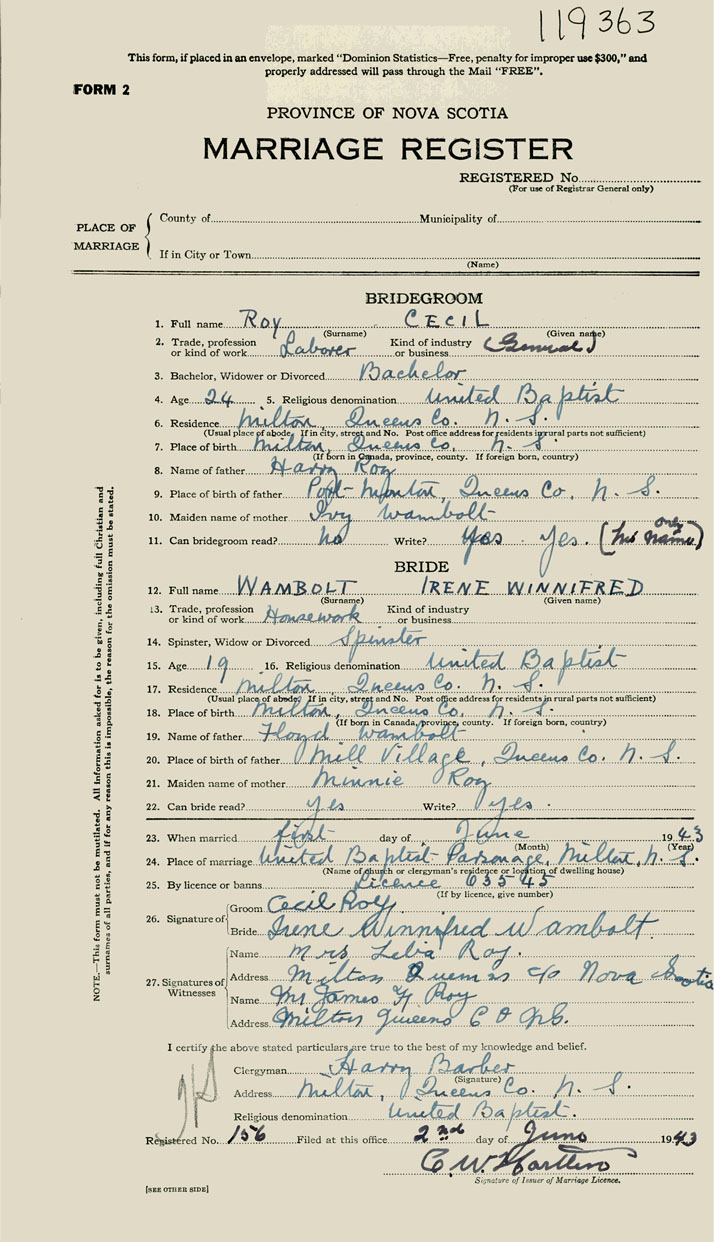 119363
This form, if placed in an envelope, marked "Dominion Statistics—Free, penalty for improper use $300," and
properly addressed will pass through the Mail "FREE".
FORM 2
PROVINCE OF NOVA SCOTIA
MARRIAGE REGISTER
REGISTERED No.
(For use of Registrar General only)
PLACE OF MARRIAGE
County of Municipality of
If in City or Town
(Name)
BRIDEGROOM
1. Full name ROY CECIL
(Surname) (Given name)
2. Trade, profession or kind of work Laborer Kind of industry or business (General)
3. Bachelor, Widower or Divorced Bachelor
4. Age 24 5. Religious denomination United Baptist
6. Residence Milton, Queens Co. N. S.
(Usual place of abode. If in city, street and No. Post office address for residents in rural parts not sufficient)
7. Place of birth Milton, Queens Co. N. S.
(If born in Canada, province, county. If foreign born, country)
8. Name of father Harry Roy
9. Place of birth of father Port Mouton, Queens Co. N. S.
10. Maiden name of mother Ivy Wambolt
11. Can bridegroom read? No Write? Yes. (his name only)
BRIDE
12. Full name WAMBOLT IRENE WINNIFRED
(Surname) (Given name)
13. Trade, profession or kind of work Housework Kind of industry or business
14. Spinster, Widow or Divorced Spinster
15. Age 19 16. Religious denomination United Baptist
17. Residence Milton Queens Co. N. S.
(Usual place of abode. If in city, street and No. Post office address for residents in rural parts not sufficient)
18. Place of birth Milton, Queens Co. N. S.
(If born in Canada, province, county. If foreign born, country)
19. Name of father Floyd Wambolt
20. Place of birth of father Mill Village, Queens Co. N. S.
21. Maiden name of mother Minnie Roy
22. Can bride read? Yes Write? Yes.
23. When married first day of June 1943
(Month) (Year)
24. Place of marriage United Baptist Parsonage, Milton, N. S.
(Name of church or clergyman's residence or location of dwelling house)
25. By licence or banns Licence 03545
(If by licence, give number)
26. Signature of
Groom Cecil Roy
Bride Irene Winnifred Wambolt
27. Signatures of Witnesses
Name Mrs Roy.
Address Milton c/o Nova Scotia
Name Mr James Roy
Address Milton Queens Co
I certify the above stated particulars are true to the best of my knowledge and belief.
Clergyman Harry Barber
(Signature)
Address Milton, Queens Co. N. S.
Religious denomination United Baptist.
Registered No. 156 Filed at this office 2nd day of June 1943
Signature of Issuer of Marriage Licence.
[SEE OTHER SIDE]
NOTE.—This form must not be mutilated. All information asked for is to be given, including full Christian and
surnames of all parties, and if for any reason this is impossible, the reason for the omission must be stated.